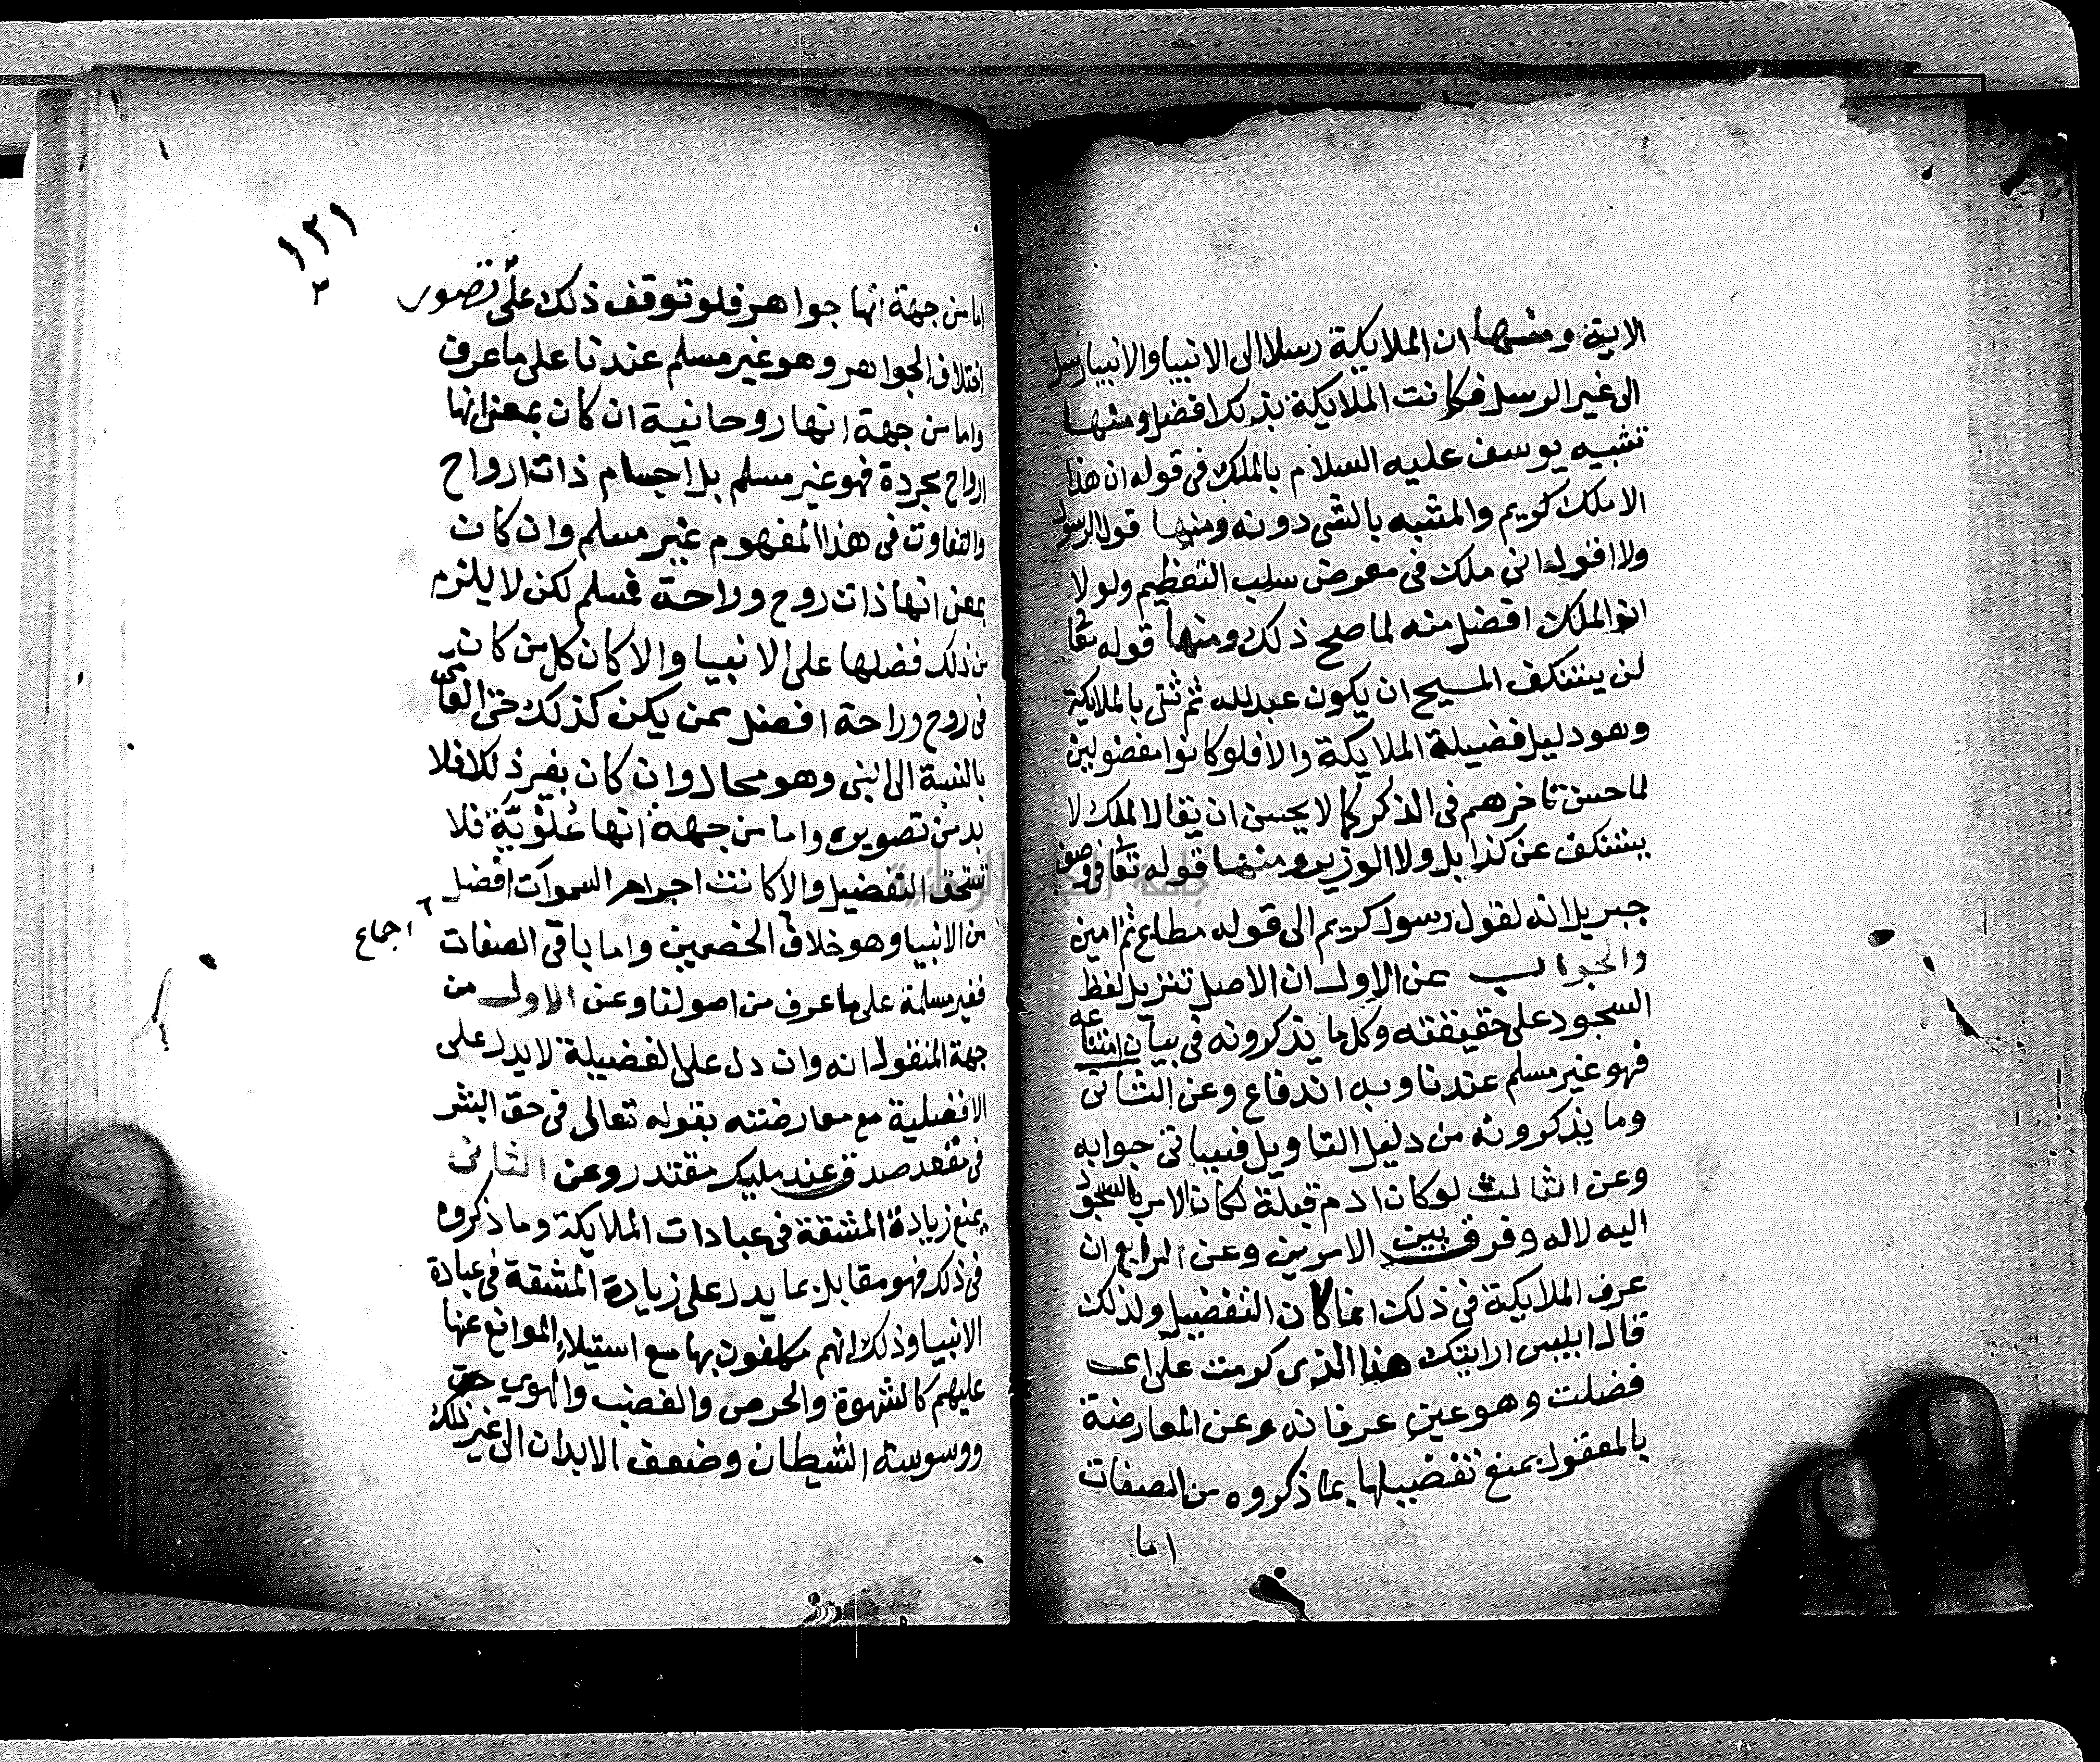 الاية ومنها ان الملايكة رسلا الى الانبيا والانبيا رسل
الى غير الرسل فكانت الملايكة بذلك افضل ومنها
تشبيه يوسف عليه السلام بالملك فى قوله ان هذا
الا ملك كريم والمشبه بالشى دونه ومنها قول الرسول
ولا اقول انى ملك فى معرض سلب التعظيم ولولا
ان الملك افضل منه لما صح ذلك ومنها قوله تعا
لن يستنكف المسيح ان يكون عبد لله ثم ثنى بالملايكة
وهو دليل فضيلة الملايكة والا فلو كانوا مفضولين
لما حسن تاخرهم فى الذكر كما لا يحسن ان يقال الملك لا
يستنكف عن كذا بل ولا الوزير ومنها قوله تعا فى وصف
جبريل انه لقول رسول كريم الى قوله مطاع ثم امين
والجواب عن الاول ان الاصل تنزيل لفظ
السجود على حقيقته وكل ما يذكرونه فى بيان امتناعه
فهو غير مسلم عندنا وبه اندفاع وعن الثانى
وما يذكرونه من دليل التاويل فسياتى جوابه
وعن الثالث لو كان ادم قبلة لكان الامر بالسجود
اليه لا له وفرق بين الامرين وعن الرابع ان
عرف الملايكة فى ذلك انما كان التفضيل ولذلك
قال ابليس ارايتك هذا الذى كرمت على اى
فضلت وهو عين عرفانه وعن المعارضة
بالمعقول بمنع تفضيلها بما ذكروه من الصفات
اما
١٢١
اما من جهة انها جواهر فلو توقف ذلك على تصور
اختلاف الجواهر وهو غير مسلم عندنا على ما عرف
واما من جهة انها روحانية ان كان بمعنى انها
ارواح مجردة فهو غير مسلم بل اجسام ذات ارواح
والتفاوت فى هذا المفهوم غير مسلم وان كان
بمعنى انها ذات روح وراحة فمسلم لكن لا يلزم
من ذلك فضلها على الانبيا والا كان كل من كان
فى روح وراحة افضل ممن يكن كذلك حتى العامى
بالنسبة الى النبى وهو محال وان كان بغير ذلك فلا
بد من تصويره واما من جهة انها علوية فلا
تستحق التفضيل والا كانت اجرام السموات افضل
من الانبيا وهو خلاف الخصمين واما باقى الصفات
اجماع
فغير مسلمة على ما عرف من اصولنا وعن الاول من
جهة المنقول انه وان دل على الفضيلة لا يدل على
الافضلية مع معارضته بقوله تعالى فى حق البشر
فى مقعد صدق عند مليك مقتدر وعن الثانى
بمنع زيادة المشقة فى عبادات الملايكة وما ذكروه
فى ذلك فهو مقابل بما يدل على زيادة المشقة فى عبادة
الانبيا وذلك انهم مكلفون بها مع استيلاء الموانع عنها
عليهم كالشهوة والحرص والغضب والهوى
ووسوسة الشيطان وضعف الابدان الى غير ذلك